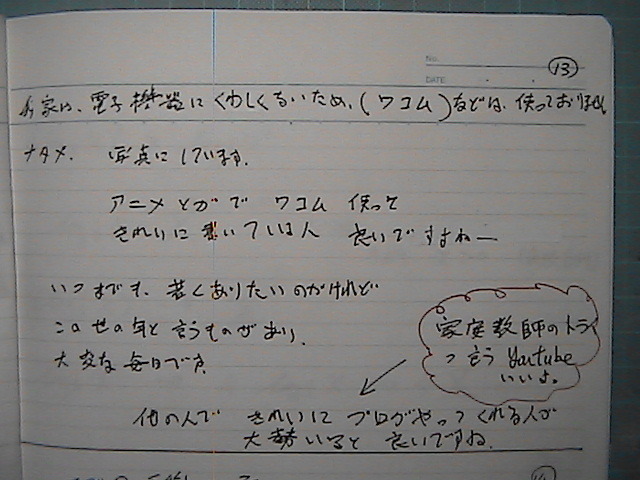 No.
DATE
13
家は、電子機器にくわしくないため、(ワコム)などは、使っておりません
ナタメ. 写真にしています。
アニメとかで ワコム 使って
きれいに書いている人 良いですよねー
いつまでも、若くありたいのだけれど
この世の年と言うものがあり、
大変な毎日です。
家庭教師のトライ
って言う Youtube
いいよ。
他の人で きれいに ブログやってくれる人が
大勢いると 良いですね。